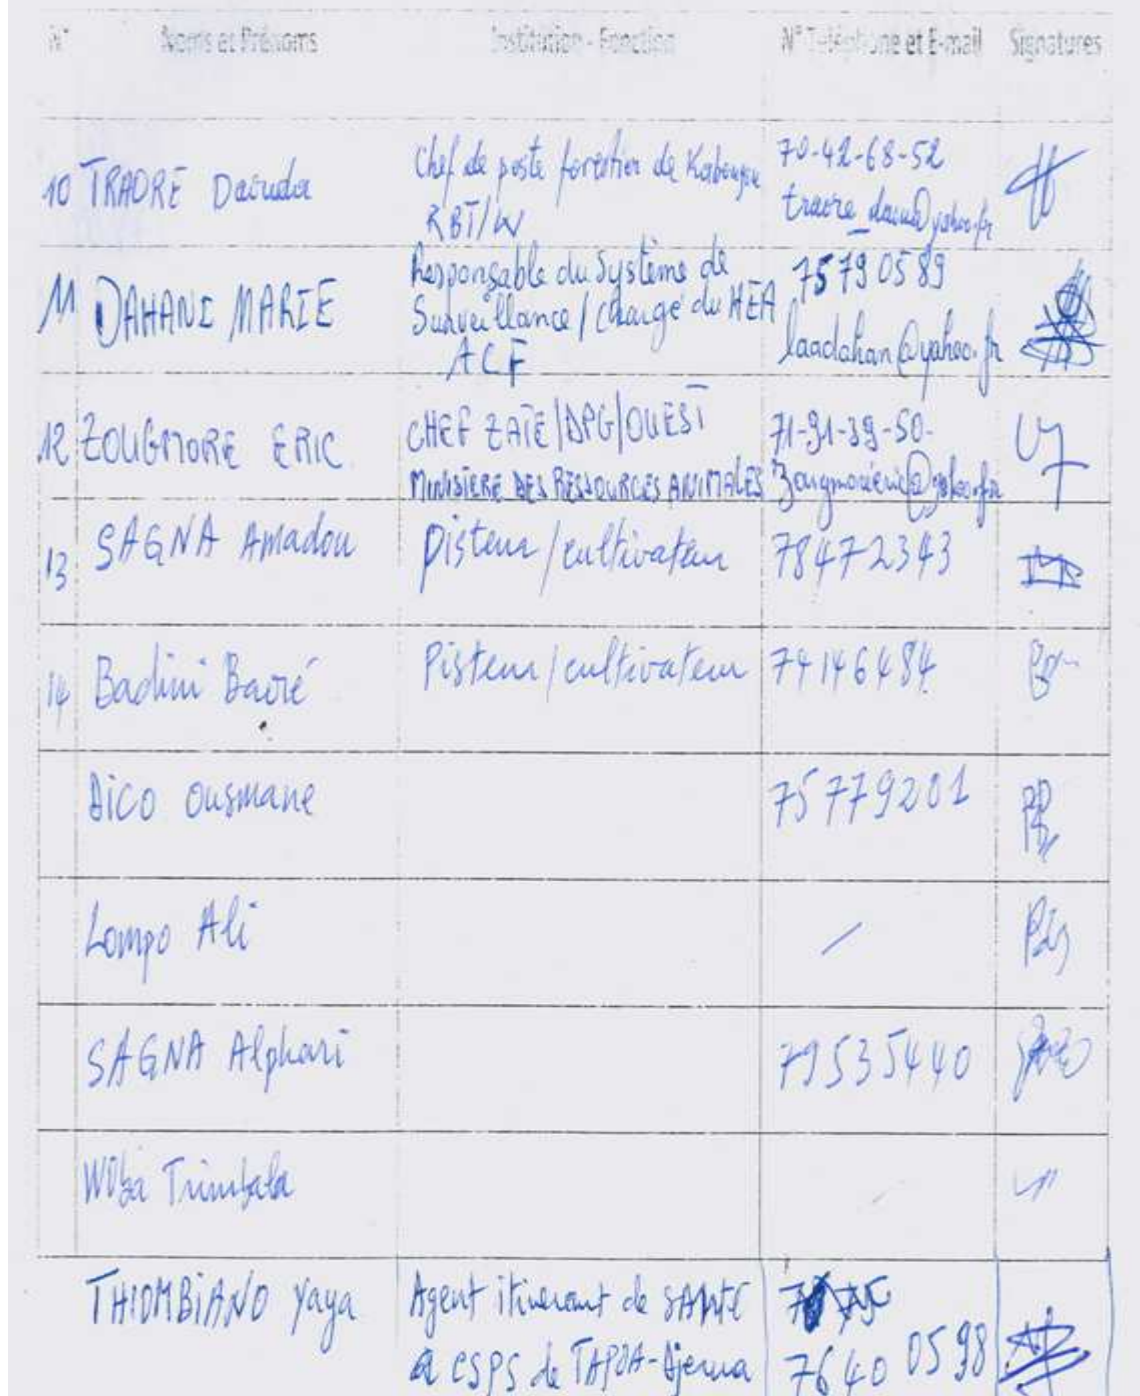 N° Noms et Prénoms Institution - Fonction N° Téléphone et E-mail Signatures
10 TRAORE Daouda Chef de poste forestier de Kabougou 70-42-68-52
RBT/W traore_daou@yahoo.fr
11 DAHANI MARIE Responsable du Système de 75 79 05 89
Surveillance / Chargé du HEA
ACF laadahan@yahoo.fr
12 ZOUGMORE ERIC CHEF ZATE/DPG/OUEST 71-91-39-50-
MINISTERE DES RESSOURCES ANIMALES zougmoreric@yahoo.fr
13 SAGNA Amadou Pisteur/cultivateur 78472343
14 Badini Baoré Pisteur/cultivateur 74146484
Dico Ousmane 75779201
Lompo Ali /
SAGNA Alphari 79535440
Woba Trimbala
THIOMBIANO Yaya Agent itinerant de SANTE
a CSPS de TAPOA-Djerma 7640 0598